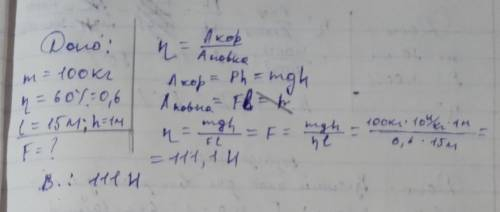 Дано:
m = 100кг
η = 60% = 0,6
l = 15м; h = 1м
F = ?
В.: 111 Н
η = Aкор / Aповна
Aкор = Ph = mgh
Aповна = Fl = h
η = mgh / Fl = F = mgh / ηl = 100кг · 10 Н/кг · 1м / 0,6 · 15м =
= 111,1 Н